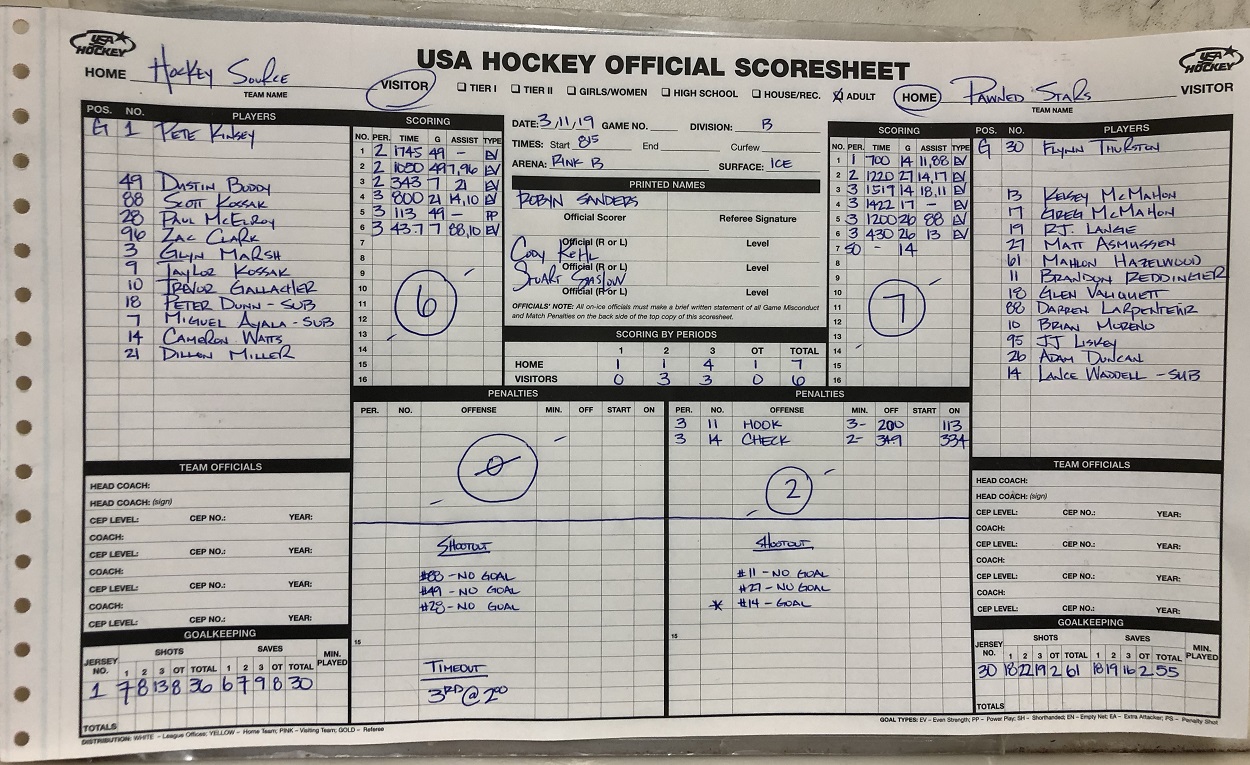 USA HOCKEY
USA HOCKEY OFFICIAL SCORESHEET
USA HOCKEY
HOME Hockey Source VISITOR
TEAM NAME
☐ TIER I ☐ TIER II ☐ GIRLS/WOMEN ☐ HIGH SCHOOL ☐ HOUSE/REC. ☒ ADULT
HOME Pawned Stars VISITOR
TEAM NAME
POS. NO. PLAYERS
G 1 Pete Kinsey
49 Dustin Buddy
88 Scott Kossak
28 Paul McElroy
96 Zac Clark
3 Glyn Marsh
9 Taylor Kossak
10 Trevor Gallagher
18 Peter Dunn - Sub
7 Miguel Ayala - Sub
14 Cameron Watts
21 Dillon Miller
SCORING
NO. PER. TIME G ASSIST TYPE
1 2 1745 49 - EV
2 2 1030 49 7,96 EV
3 2 343 7 21 EV
4 3 800 21 14,10 EV
5 3 113 49 - PP
6 3 43.7 7 88,10 EV
7
8
9
10
11
12
13
14
15
16
6
DATE: 3/11/19 GAME NO. DIVISION: B
TIMES: Start 815 End Curfew
ARENA: RINK B SURFACE: ICE
PRINTED NAMES
Robyn Sanders
Official Scorer Referee Signature
Cody Kehl
Official (R or L) Level
Stuart
Official (R or L) Level
Official (R or L) Level
OFFICIALS' NOTE: All on-ice officials must make a brief written statement of all Game Misconduct
and Match Penalties on the back side of the top copy of this scoresheet.
SCORING BY PERIODS
1 2 3 OT TOTAL
HOME 1 1 4 1 7
VISITORS 0 3 3 0 6
SCORING
NO. PER. TIME G ASSIST TYPE
1 1 700 14 11,88 EV
2 2 1220 27 14,17 EV
3 3 1519 14 18,11 EV
4 3 1422 17 - EV
5 3 1200 26 88 EV
6 3 430 26 13 EV
7 SO - 14
8
9
10
11
12
13
14
15
16
7
POS. NO. PLAYERS
G 30 Flynn Thurston
13 Kelsey McMahon
17 Greg McMahon
19 R.J. Lange
27 Matt Asmussen
61 Mahlon Hazelwood
11 Brandon Reddingier
18 Glen Valiquett
88 Darren Larpenteur
10 Brian Moreno
95 JJ Liskey
26 Adam Duncan
14 Lance Waddell - Sub
PENALTIES
PER. NO. OFFENSE MIN. OFF START ON
0
Shootout
#88 - No Goal
#49 - No Goal
#28 - No Goal
15
Timeout
3RD @ 200
PENALTIES
PER. NO. OFFENSE MIN. OFF START ON
3 11 HOOK 3- 200 113
3 14 CHECK 2- 349 334
2
Shootout
#11 - No Goal
#27 - No Goal
* #14 - Goal
15
TEAM OFFICIALS
HEAD COACH:
HEAD COACH: (sign)
CEP LEVEL: CEP NO.: YEAR:
COACH:
CEP LEVEL: CEP NO.: YEAR:
COACH:
CEP LEVEL: CEP NO.: YEAR:
COACH:
CEP LEVEL: CEP NO.: YEAR:
GOALKEEPING
JERSEY NO. SHOTS SAVES MIN. PLAYED
1 2 3 OT TOTAL 1 2 3 OT TOTAL
1 7 8 13 8 36 6 7 9 8 30
TOTALS
TEAM OFFICIALS
HEAD COACH:
HEAD COACH: (sign)
CEP LEVEL: CEP NO.: YEAR:
COACH:
CEP LEVEL: CEP NO.: YEAR:
COACH:
CEP LEVEL: CEP NO.: YEAR:
COACH:
CEP LEVEL: CEP NO.: YEAR:
GOALKEEPING
JERSEY NO. SHOTS SAVES MIN. PLAYED
1 2 3 OT TOTAL 1 2 3 OT TOTAL
30 18 22 19 2 61 18 19 16 2 55
TOTALS
DISTRIBUTION: WHITE - League Offices; YELLOW - Home Team; PINK - Visiting Team; GOLD - Referee
GOAL TYPES: EV - Even Strength; PP - Power Play; SH - Shorthanded; EN - Empty Net; EA - Extra Attacker; PS - Penalty Shot